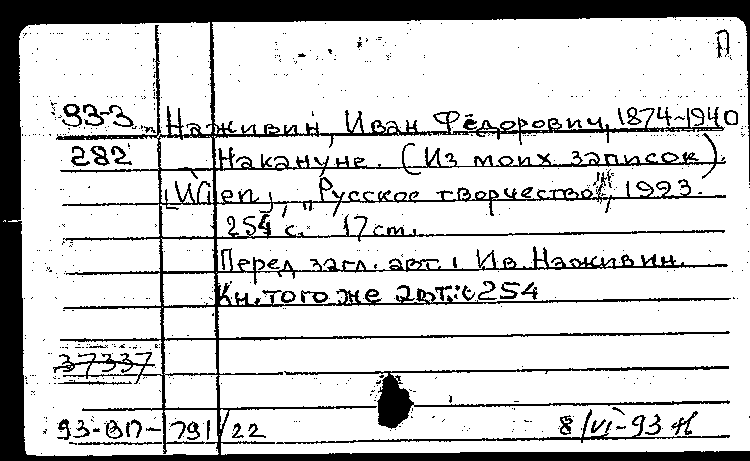 П
93-3 Наживин, Иван Фёдорович, 1874-1940
282 Накануне. (Из моих записок).
[Wien], "Русское творчество", 1923.
254 с. 17 cm.
Перед загл. авт.: Ив. Наживин.
Кн. того же авт.: с 254
37337
93-ВП-791/22 8/VI-93